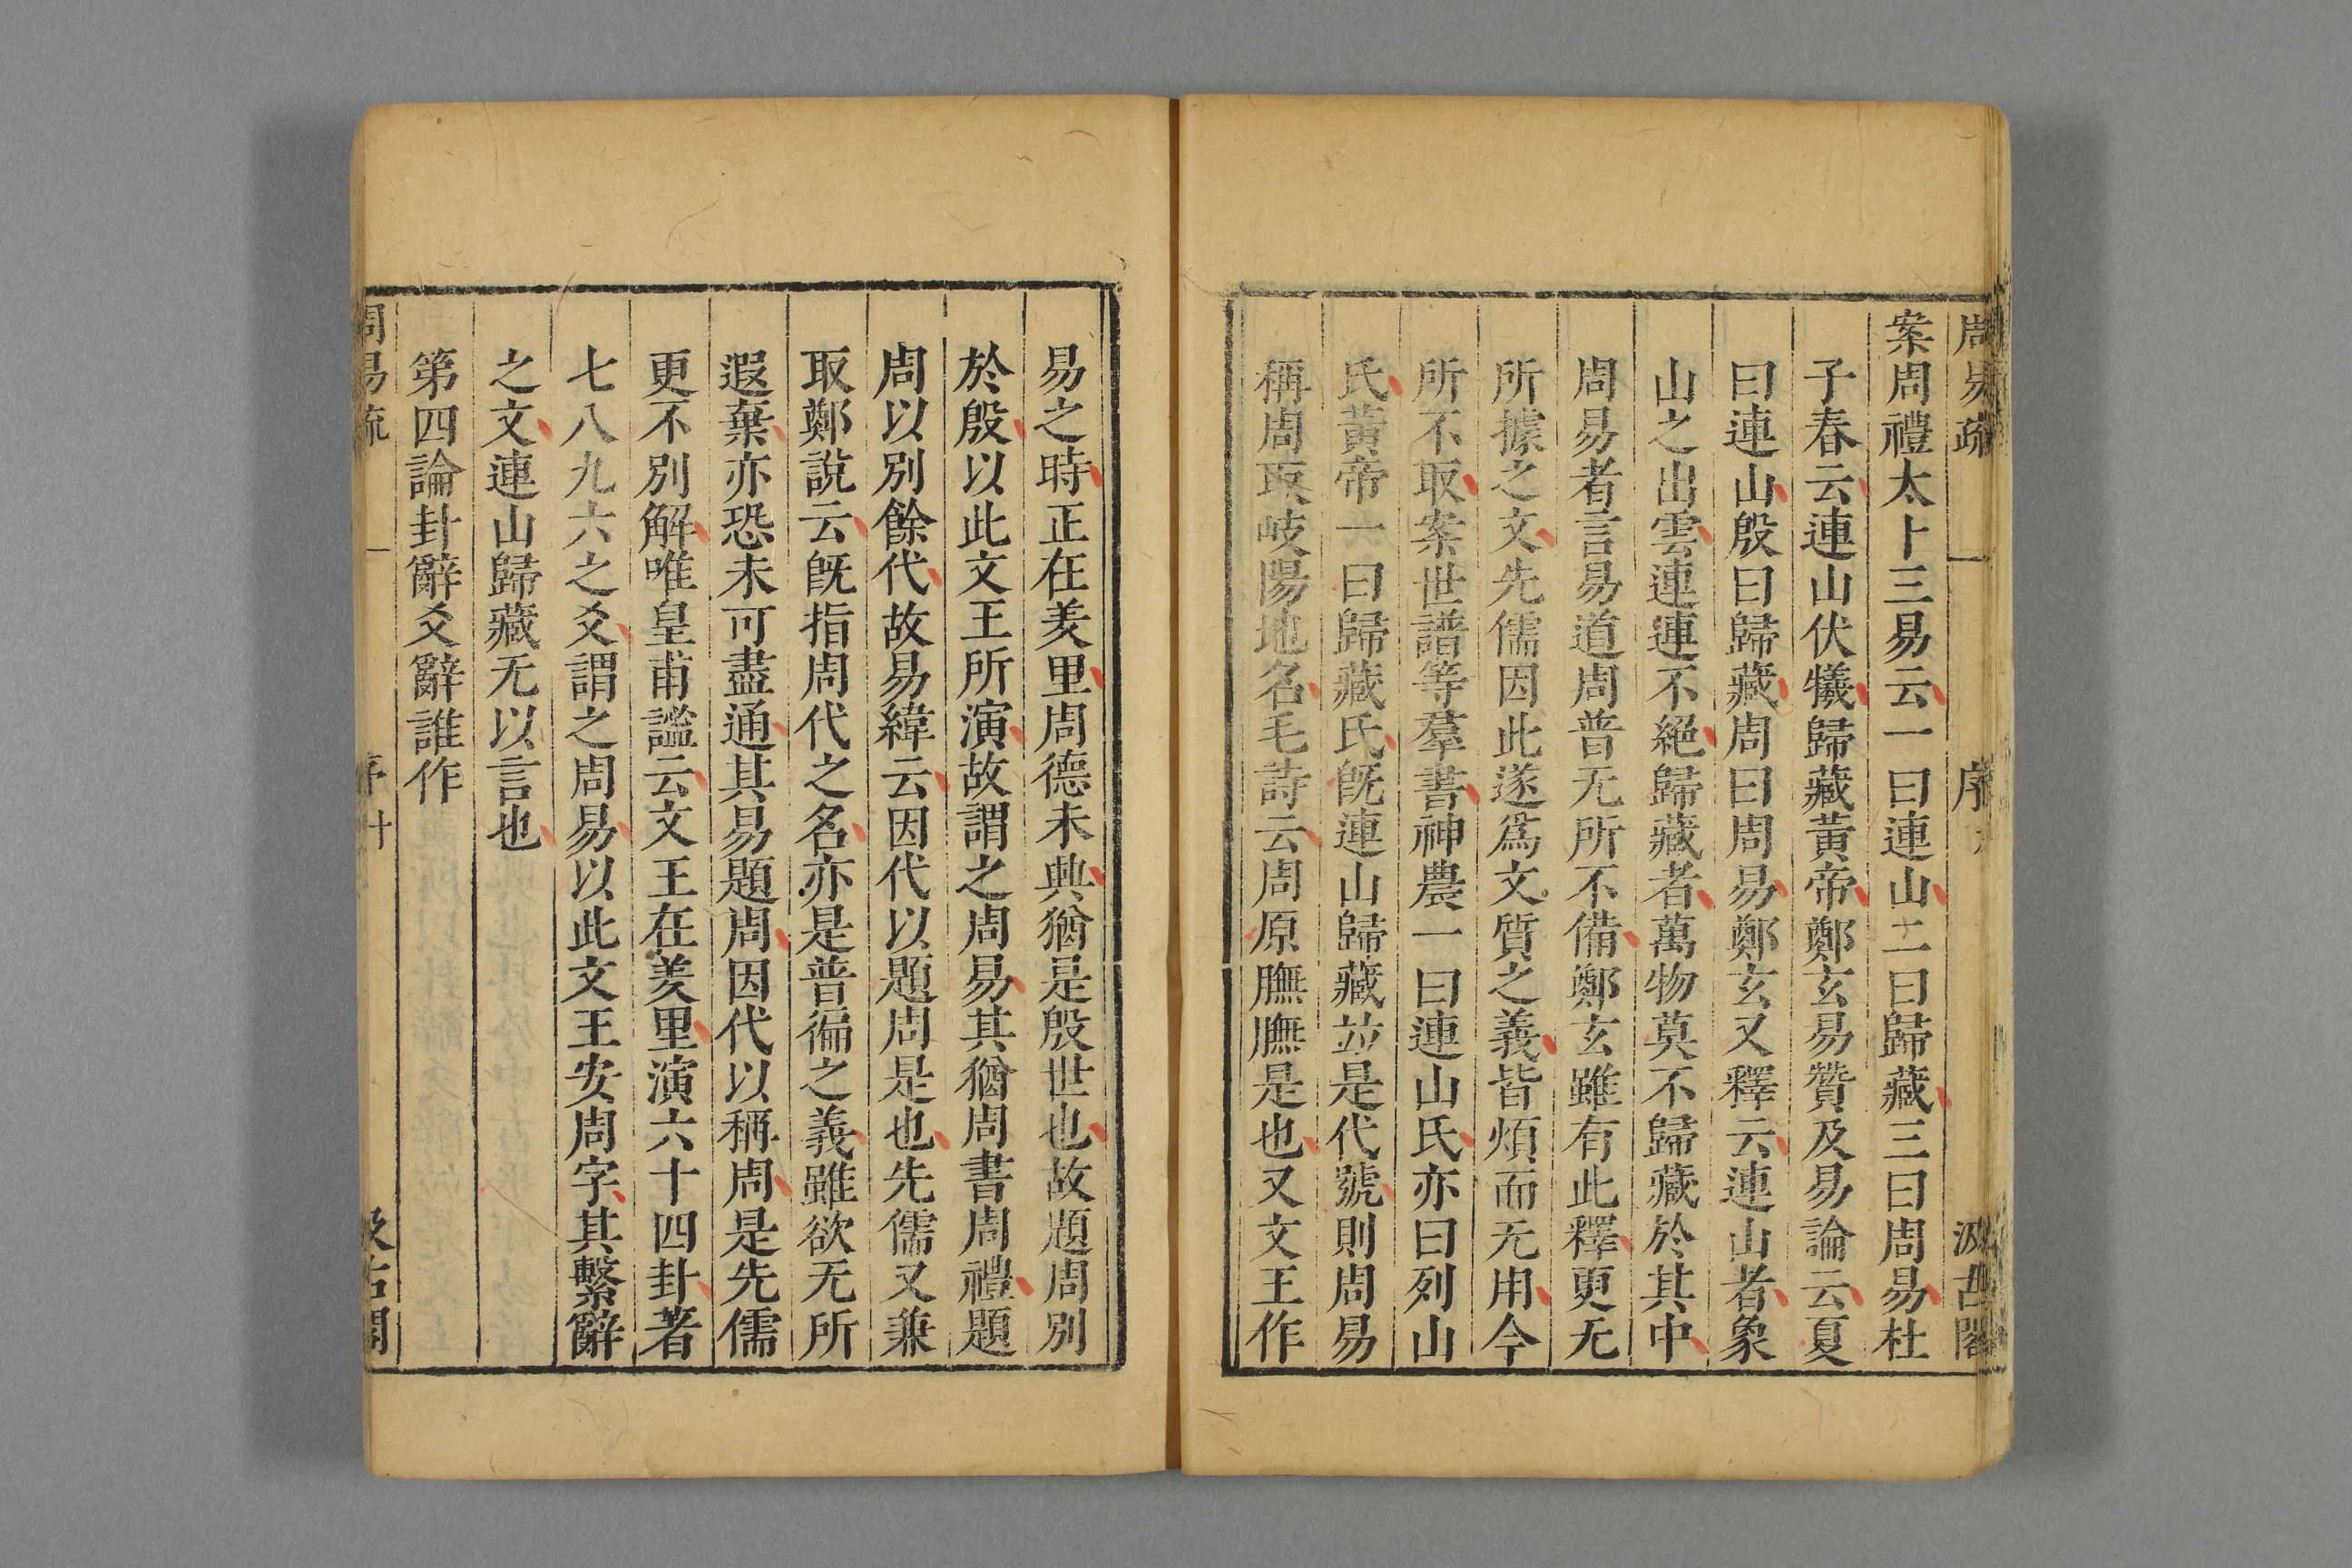 周易疏 一 序 汲古閣
案周禮太卜三易云一曰連山二曰歸藏三曰周易杜
子春云連山伏犧歸藏黃帝鄭玄易贊及易論云夏
曰連山殷曰歸藏周曰周易鄭玄又釋云連山者象
山之出雲連連不絕歸藏者萬物莫不歸藏於其中
周易者言易道周普无所不備鄭玄雖有此釋更无
所據之文先儒因此遂爲文質之義皆煩而无用今
所不取案世譜等羣書神農一曰連山氏亦曰列山
氏黃帝一曰歸藏氏旣連山歸藏竝是代號則周易
稱周取岐陽地名毛詩云周原膴膴是也又文王作
易之時正在羑里周德未興猶是殷世也故題周別
於殷以此文王所演故謂之周易其猶周書周禮題
周以別餘代故易緯云因代以題周是也先儒又兼
取鄭說云旣指周代之名亦是普徧之義雖欲无所
遐棄亦恐未可盡通其易題周因代以稱周是先儒
更不別解唯皇甫謐云文王在羑里演六十四卦著
七八九六之爻謂之周易以此文王安周字其繫辭
之文連山歸藏无以言也
第四論卦辭爻辭誰作
周易疏 一 序 十 汲古閣